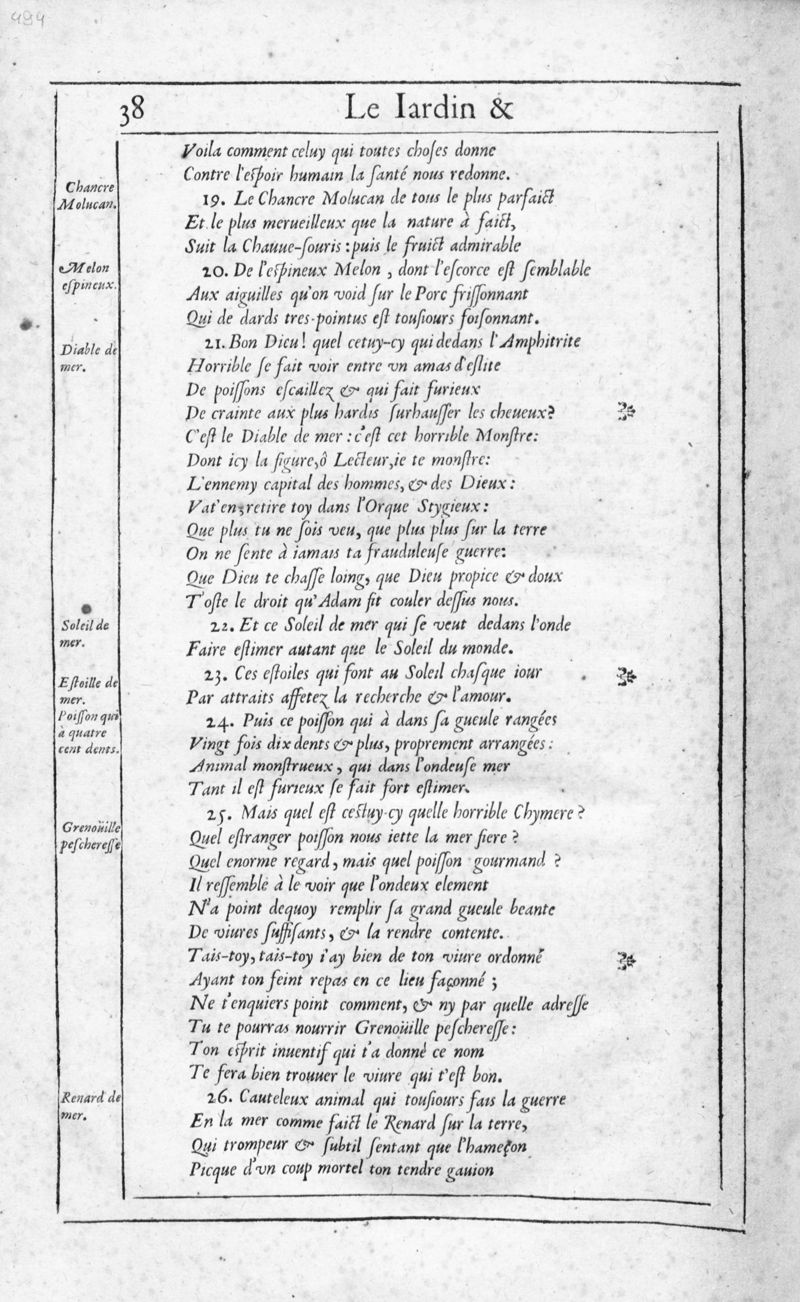 494
38 Le Iardin &
Voila comment celuy qui toutes choſes donne
Contre l'eſpoir humain la ſanté nous redonne.
Chancre
Molucan.
19. Le Chancre Molucan de tous le plus parfaict
Et le plus merueilleux que la nature à faict,
Suit la Chauue-ſouris : puis le fruict admirable
Melon
eſpineux.
20. De l'eſpineux Melon , dont l'eſcorce eſt ſemblable
Aux aiguilles qu'on void ſur le Porc friſſonnant
Qui de dards tres-pointus eſt touſiours foiſonnant.
Diable de
mer.
21. Bon Dieu! quel cetuy-cy qui dedans l'Amphitrite
Horrible ſe fait voir entre vn amas d'eſlite
De poiſſons eſcaillez & qui fait furieux
De crainte aux plus hardis ſurhauſſer les cheueux?
C'eſt le Diable de mer : c'eſt cet horrible Monſtre:
Dont icy la figure,ô Lecteur,ie te monſtre:
L'ennemy capital des hommes, & des Dieux :
Vat'en,retire toy dans l'Orque Stygieux :
Que plus tu ne ſois veu, que plus plus ſur la terre
On ne ſente à iamais ta frauduleuſe guerre:
Que Dieu te chaſſe loing, que Dieu propice & doux
T'oſte le droit qu'Adam fit couler deſſus nous.
Soleil de
mer.
22. Et ce Soleil de mer qui ſe veut dedans l'onde
Faire eſtimer autant que le Soleil du monde.
Eſtoille de
mer.
23. Ces eſtoiles qui font au Soleil chaſque iour
Par attraits affetez la recherche & l'amour.
Poiſſon qui
à quatre
cent dents.
24. Puis ce poiſſon qui à dans ſa gueule rangées
Vingt fois dix dents & plus, proprement arrangées :
Animal monſtrueux, qui dans l'ondeuſe mer
Tant il eſt furieux ſe fait fort eſtimer.
Grenoüille
peſchereſſe
25. Mais quel eſt ceſtuy-cy quelle horrible Chymere ?
Quel eſtranger poiſſon nous iette la mer fiere ?
Quel enorme regard, mais quel poiſſon gourmand ?
Il reſſemble à le voir que l'ondeux element
N'a point dequoy remplir ſa grand gueule beante
De viures ſuffiſants, & la rendre contente.
Tais-toy, tais-toy i'ay bien de ton viure ordonné
Ayant ton feint repas en ce lieu façonné ;
Ne t'enquiers point comment, & ny par quelle adreſſe
Tu te pourras nourrir Grenoüille peſchereſſe :
Ton eſprit inuentif qui t'a donné ce nom
Te fera bien trouuer le viure qui t'eſt bon.
Renard de
mer.
26. Cauteleux animal qui touſiours fais la guerre
En la mer comme faict le Renard ſur la terre,
Qui trompeur & ſubtil ſentant que l'hameçon
Picque d'vn coup mortel ton tendre gauion